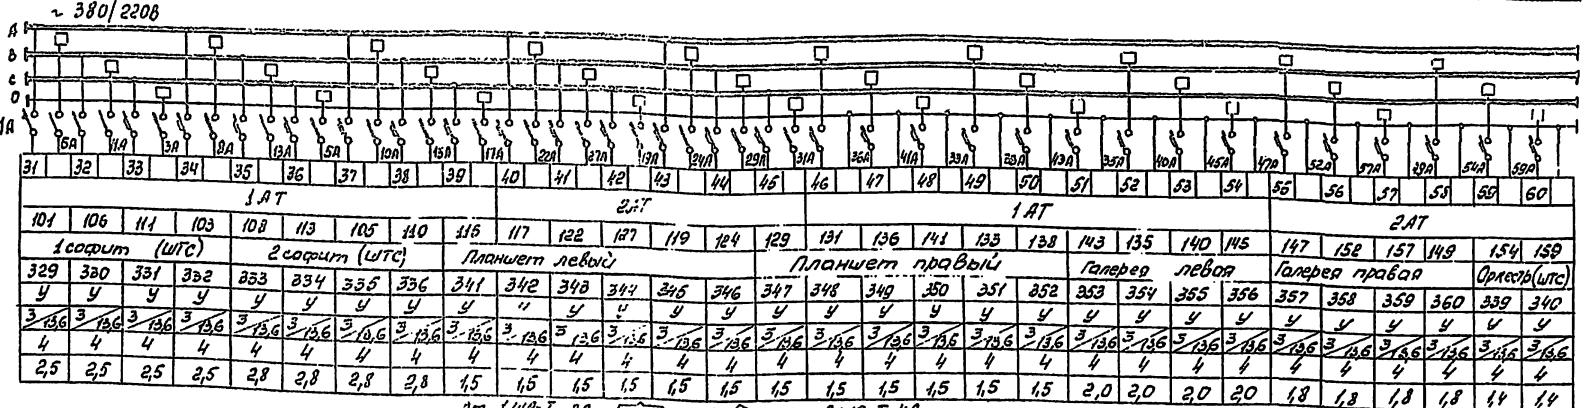 ~ 380/220В
А
В
С
0
1А 6А 11А 3А 8А 13А 5А 10А 15А 17А 22А 27А 19А 24А 29А 31А 36А 41А 33А 38А 43А 35А 40А 45А 47А 52А 57А 49А 54А 59А
31 32 33 34 35 36 37 38 39 40 41 42 43 44 45 46 47 48 49 50 51 52 53 54 55 56 57 58 59 60
1АТ 2АТ 1АТ 2АТ
101 106 111 103 108 113 105 110 115 117 122 127 119 124 129 131 136 141 133 138 143 135 140 145 147 152 157 149 154 159
1 софит (ШТС) 2 софит (ШТС) Планшет левый Планшет правый Галерея левая Галерея правая Оркестр (ШТС)
329 330 331 332 333 334 335 336 341 342 343 344 345 346 347 348 349 350 351 352 353 354 355 356 357 358 359 360 339 340
У У У У У У У У У " У У У У У У У У У У У У У У У У У У У
3/13,6 3/13,6 3/13,6 3/13,6 3/13,6 3/13,6 3/13,6 3/13,6 3/13,6 3/13,6 3/13,6 3/13,6 3/13,6 3/13,6 3/13,6 3/13,6 3/13,6 3/13,6 3/13,6 3/13,6 3/13,6 3/13,6 3/13,6 3/13,6 3/13,6 3/13,6 3/13,6 3/13,6 3/13,6 3/13,6
4 4 4 4 4 4 4 4 4 4 4 4 4 4 4 4 4 4 4 4 4 4 4 4 4 4 4 4 4 4
2,5 2,5 2,5 2,5 2,8 2,8 2,8 2,8 1,5 1,5 1,5 1,5 1,5 1,5 1,5 1,5 1,5 1,5 1,5 1,5 2,0 2,0 2,0 2,0 1,8 1,8 1,8 1,8 1,4 1,4